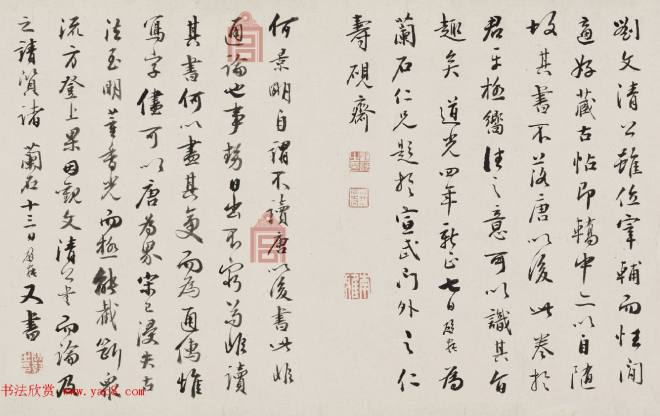 劉文清公雖位宰輔而性閒
適好藏古帖即轎中亦以自隨
故其書不落唐以後此卷於
君平極嚮往之意可以識其旨
趣矣 道光四年新正七日 為
蘭石仁兄題於宣武門外之仁
壽硯齋
何景明自謂不讀唐以後書此非
通論也事勢日出不窮苟非讀
其書何以盡其變而為通儒惟
寫字儘可以唐為界宋已浸失古
法至明董香光而極能截斷眾
流方登上果因觀文清公書而論及
之請質諸 蘭石 十三日 又書
书法欣赏 www.yac8.com